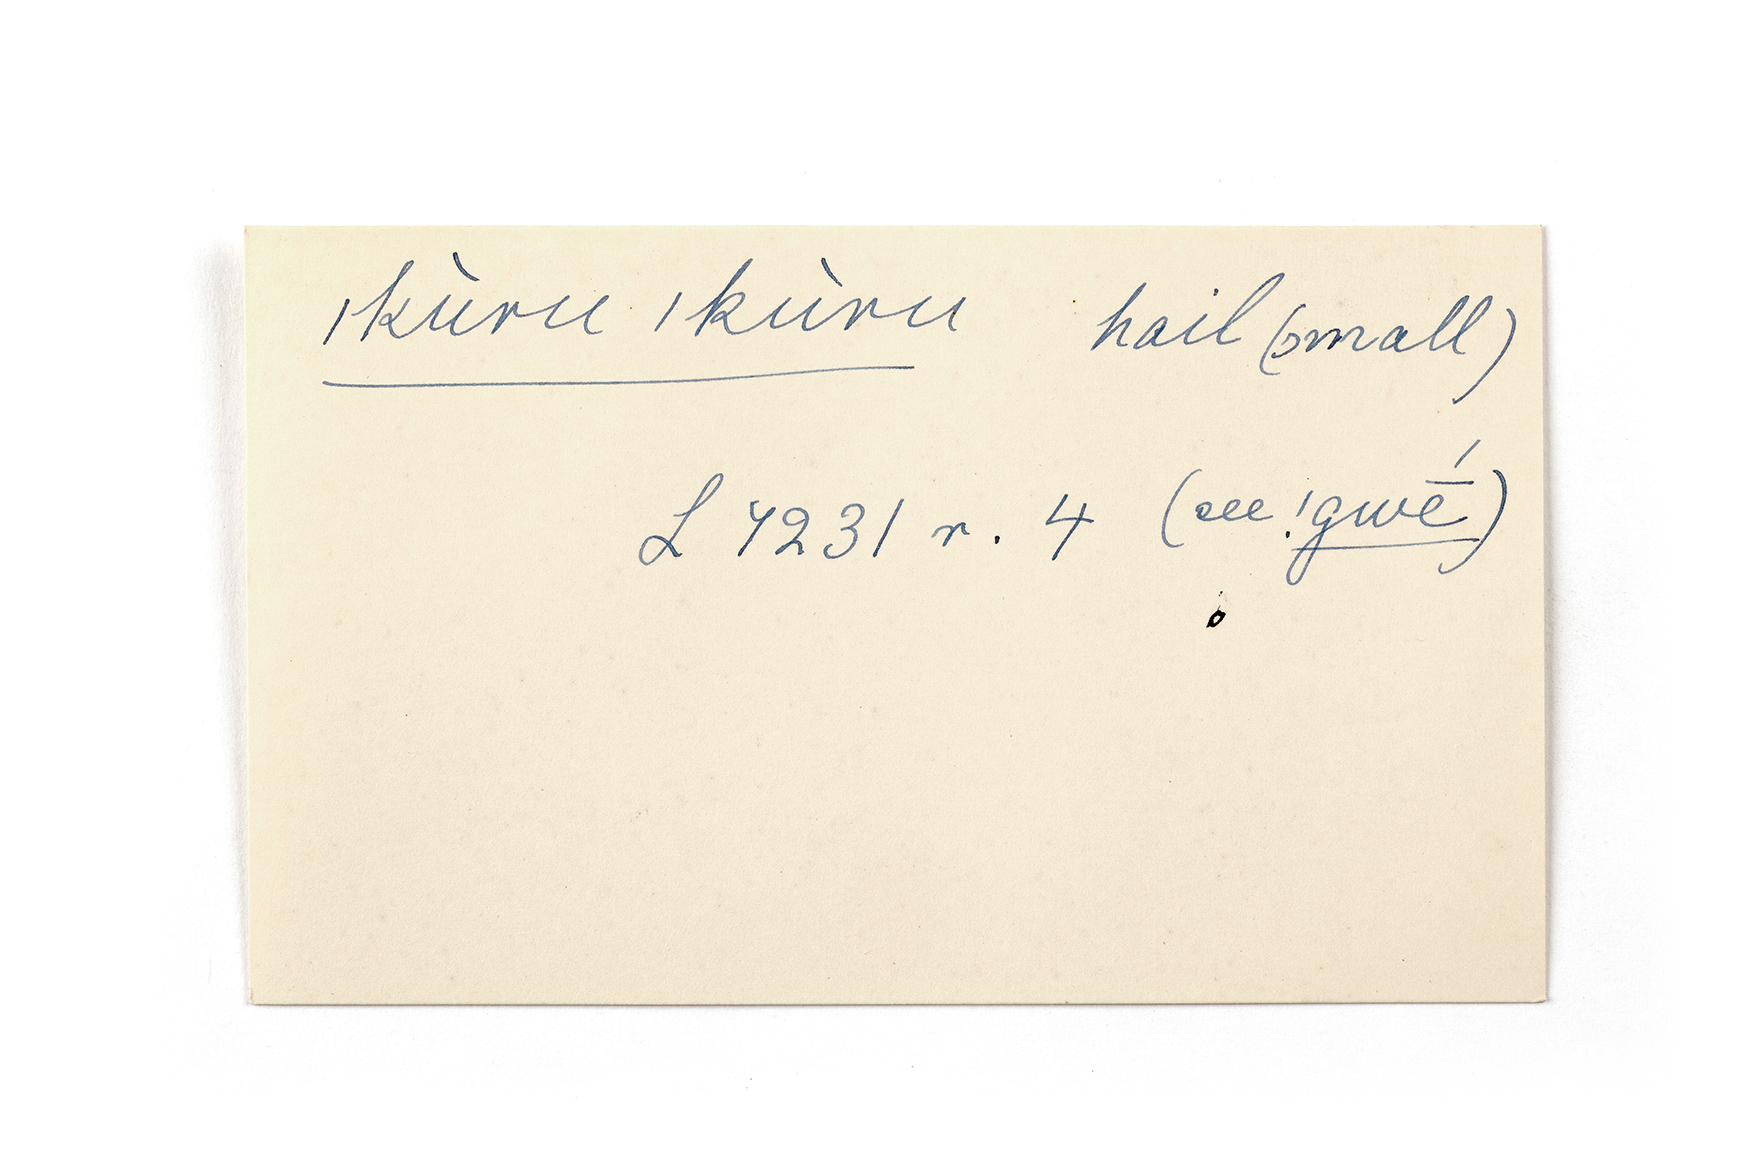 ǀkùru ǀkùru hail (small)
L 4231 r. 4 (see !gwḗ)